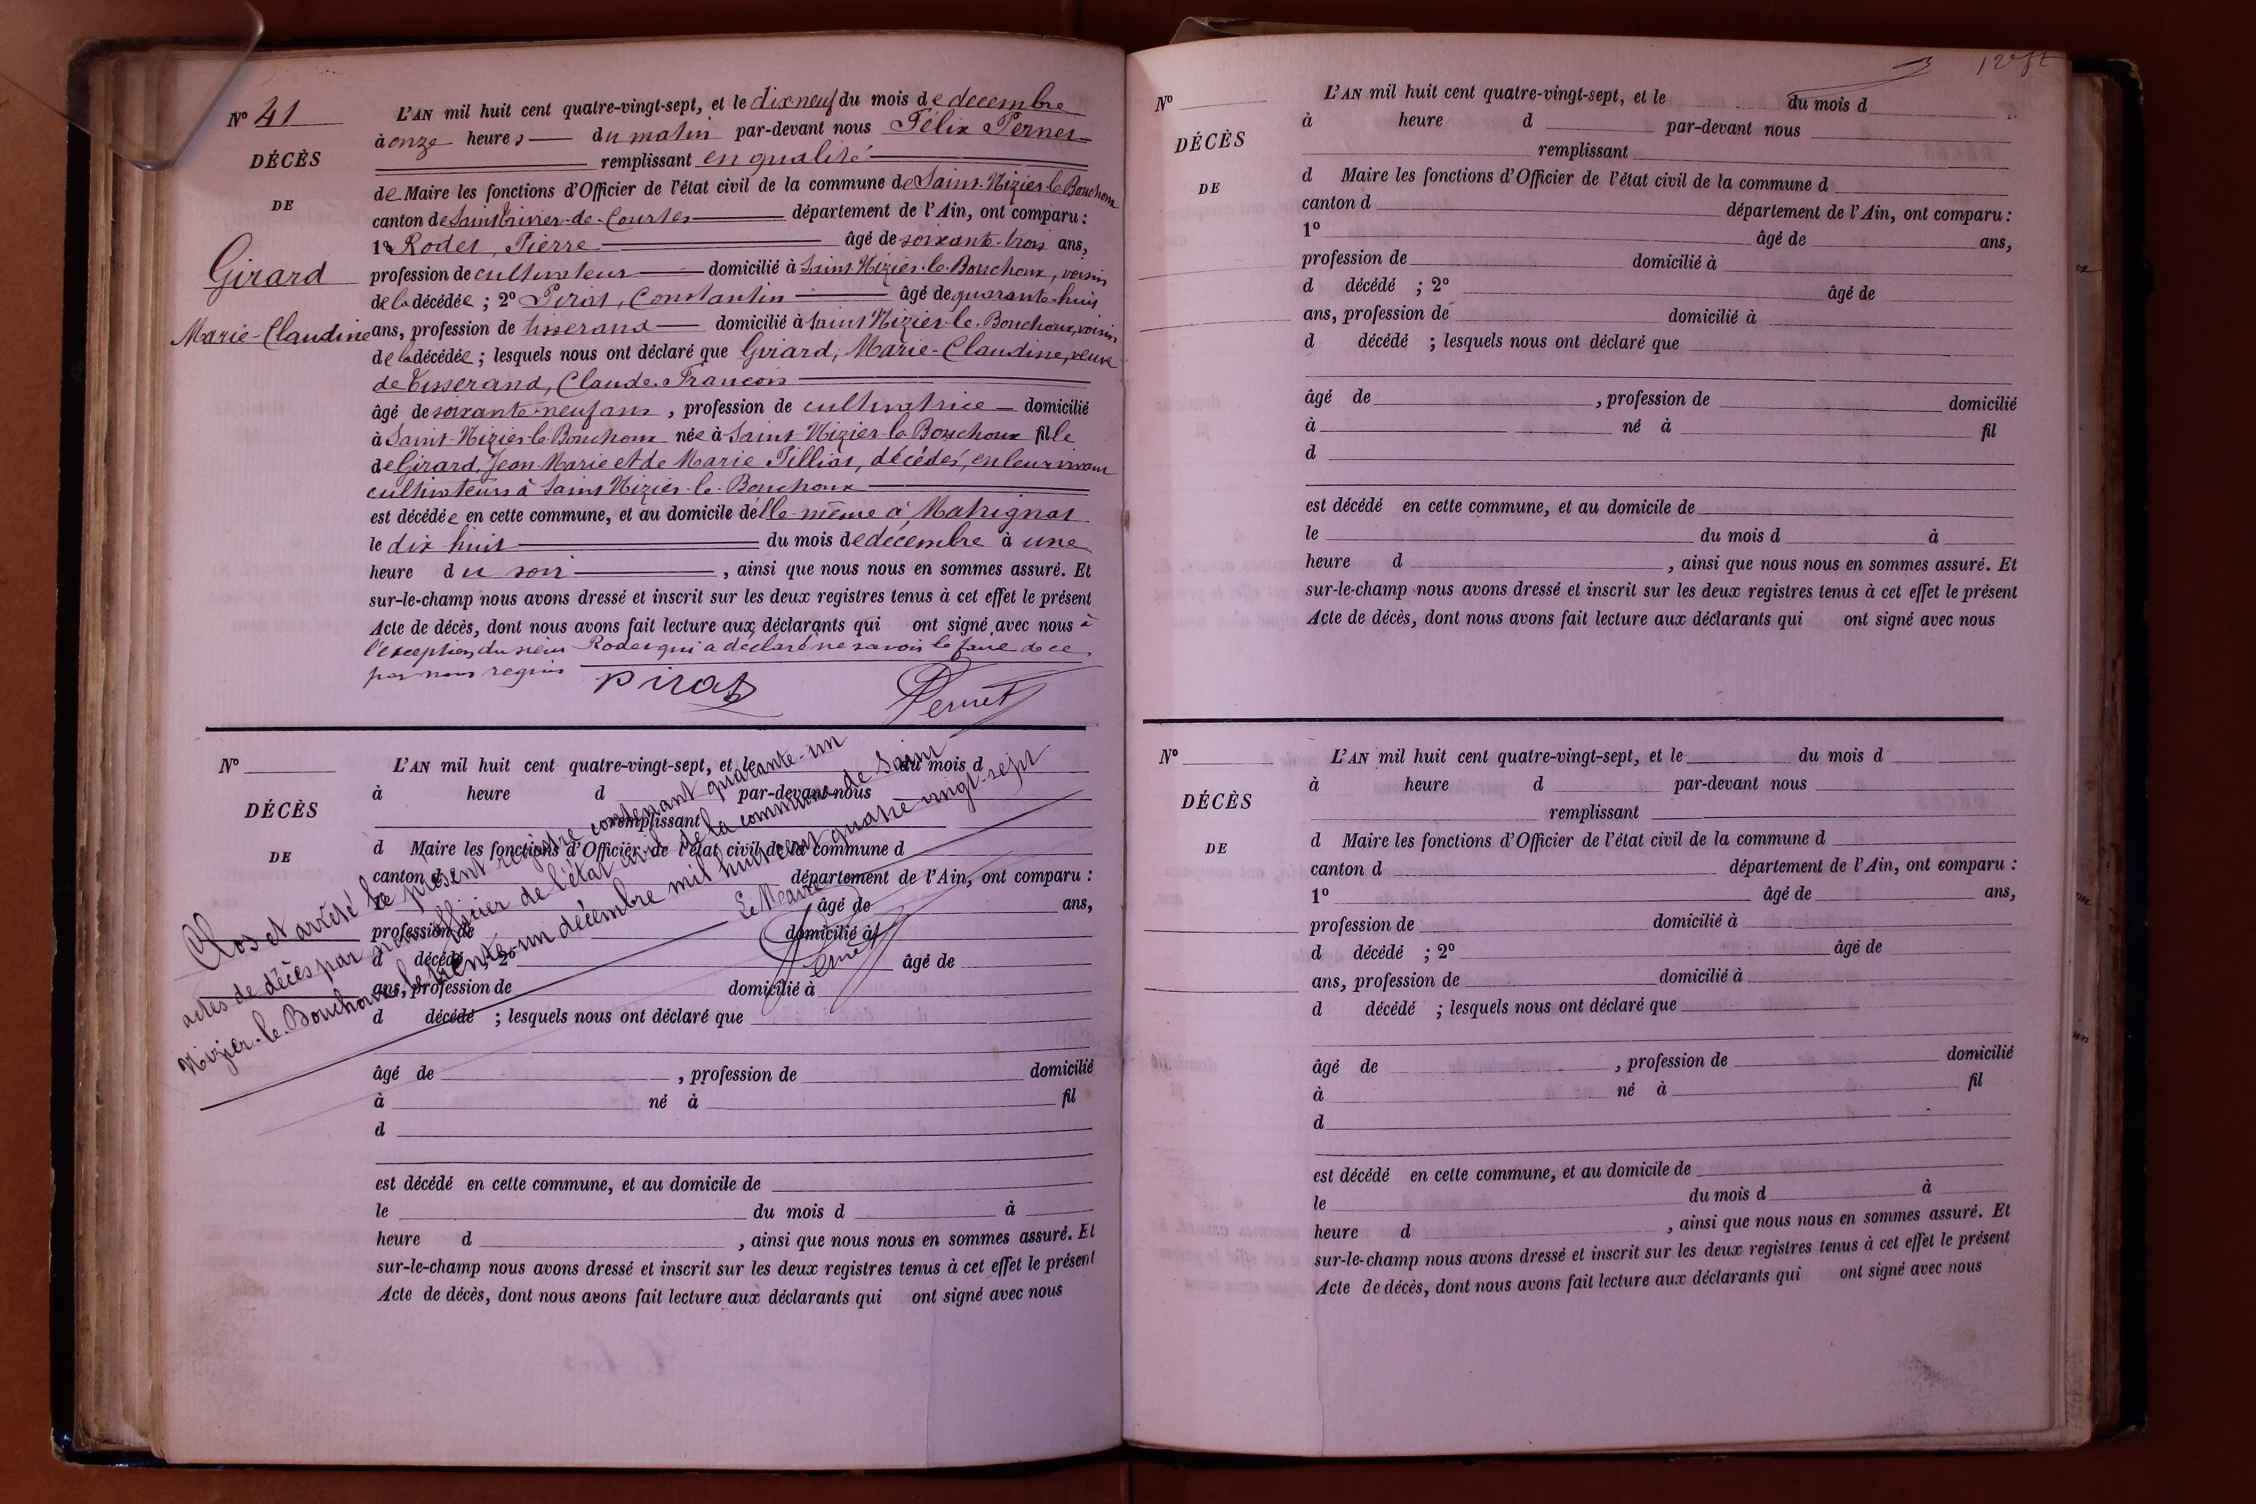 N° 41
DÉCÈS
DE
Girard
Marie-Claudine
L'AN mil huit cent quatre-vingt-sept, et le dix neuf du mois de decembre
à onze heures du matin par-devant nous Félix Pernet
remplissant en qualité
de Maire les fonctions d'Officier de l'état civil de la commune de Saint-Nizier-le-Bouchoux
canton de Saint Trivier-de-Courtes département de l'Ain, ont comparu :
1° Rodet, Pierre âgé de soixante-trois ans,
profession de cultivateur domicilié à Saint Nizier-le-Bouchoux, voisin
de la décédée ; 2° Pirat, Constantin âgé de quarante-huit
ans, profession de tisserand domicilié à Saint Nizier-le-Bouchoux, voisin
de la décédée ; lesquels nous ont déclaré que Girard, Marie-Claudine, veuve
de Tisserand, Claude-François
âgé de soixante-neuf ans , profession de cultivatrice domicilié
à Saint-Nizier-le-Bouchoux née à Saint Nizier-le Bouchoux fille
de Girard, Jean Marie et de Marie Pilliat, décédés, en leur vivant
cultivateurs à Saint Nizier-le-Bouchoux
est décédée en cette commune, et au domicile d'elle-même à Matignat
le dix huit du mois de décembre à une
heure du soir , ainsi que nous nous en sommes assuré. Et
sur-le-champ nous avons dressé et inscrit sur les deux registres tenus à cet effet le présent
Acte de décès, dont nous avons fait lecture aux déclarants qui ont signé avec nous à
l'exception du sieur Rodet qui a déclaré ne savoir le faire de ce
par nous requis
Pirat
Pernet
N°
DÉCÈS
DE
L'AN mil huit cent quatre-vingt-sept, et le du mois d
à heure d par-devant nous
remplissant
d Maire les fonctions d'Officier de l'état civil de la commune d
canton d département de l'Ain, ont comparu :
1° âgé de ans,
profession de domicilié à
d décédé ; 2° âgé de
ans, profession de domicilié à
d décédé ; lesquels nous ont déclaré que
âgé de , profession de domicilié
à né à fil
d
est décédé en cette commune, et au domicile de
le du mois d à
heure d , ainsi que nous nous en sommes assuré. Et
sur-le-champ nous avons dressé et inscrit sur les deux registres tenus à cet effet le présent
Acte de décès, dont nous avons fait lecture aux déclarants qui ont signé avec nous
Clos et arrêté le présent registre contenant quarante-un
actes de décès par nous officier de l'état civil de la commune de Saint
Nizier-le-Bouchoux le trente-un décembre mil huit cent quatre vingt-sept
Le Maire
Pernet
N°
DÉCÈS
DE
L'AN mil huit cent quatre-vingt-sept, et le du mois d
à heure d par-devant nous
remplissant
d Maire les fonctions d'Officier de l'état civil de la commune d
canton d département de l'Ain, ont comparu :
1° âgé de ans,
profession de domicilié à
d décédé ; 2° âgé de
ans, profession de domicilié à
d décédé ; lesquels nous ont déclaré que
âgé de , profession de domicilié
à né à fil
d
est décédé en cette commune, et au domicile de
le du mois d à
heure d , ainsi que nous nous en sommes assuré. Et
sur-le-champ nous avons dressé et inscrit sur les deux registres tenus à cet effet le présent
Acte de décès, dont nous avons fait lecture aux déclarants qui ont signé avec nous
N°
DÉCÈS
DE
L'AN mil huit cent quatre-vingt-sept, et le du mois d
à heure d par-devant nous
remplissant
d Maire les fonctions d'Officier de l'état civil de la commune d
canton d département de l'Ain, ont comparu :
1° âgé de ans,
profession de domicilié à
d décédé ; 2° âgé de
ans, profession de domicilié à
d décédé ; lesquels nous ont déclaré que
âgé de , profession de domicilié
à né à fil
d
est décédé en cette commune, et au domicile de
le du mois d à
heure d , ainsi que nous nous en sommes assuré. Et
sur-le-champ nous avons dressé et inscrit sur les deux registres tenus à cet effet le présent
Acte de décès, dont nous avons fait lecture aux déclarants qui ont signé avec nous